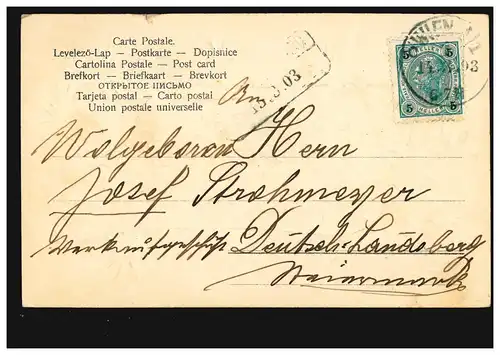 Carte Postale.
Levelező-Lap — Postkarte — Dopisnice
Cartolina Postale — Post card
Brefkort — Briefkaart — Brevkort
ОТКРЫТОЕ ПИСЬМО
Tarjeta postal — Carto postal
Union postale universelle
15.3.03
WIEN
14 03
5 5
HELLER
5 5
An
Wolgeboren Herrn
Josef Strohmeyer
Deutsch-Landsberg
Steiermark